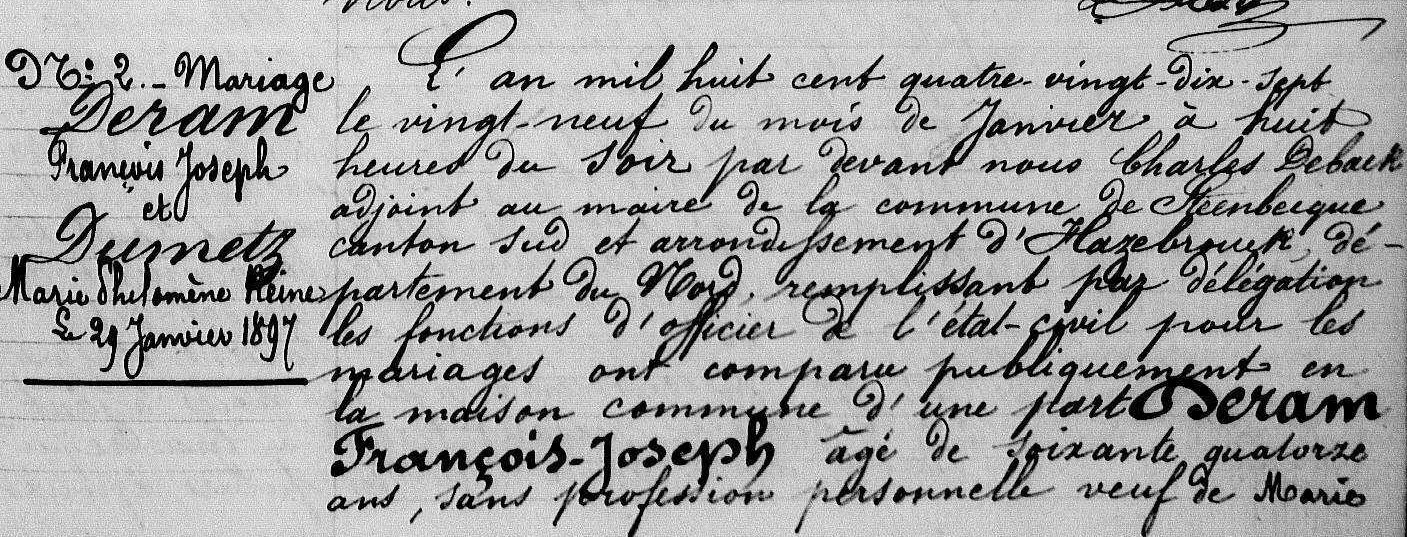 nous.
N°: 2. - Mariage
Deram
François Joseph
et
Dumetz
Marie Philomène Reine
Le 29 Janvier 1897
L'an mil huit cent quatre-vingt-dix-sept
le vingt-neuf du mois de Janvier à huit
heures du soir par devant nous Charles Deback
adjoint au maire de la commune de Steenbecque
canton sud et arrondissement d'Hazebrouck, dé-
partement du Nord, remplissant par délégation
les fonctions d'officier de l'état-civil pour les
mariages ont comparu publiquement en
la maison commune d'une part Deram
François-Joseph âgé de soixante quatorze
ans, sans profession personnelle veuf de Marie